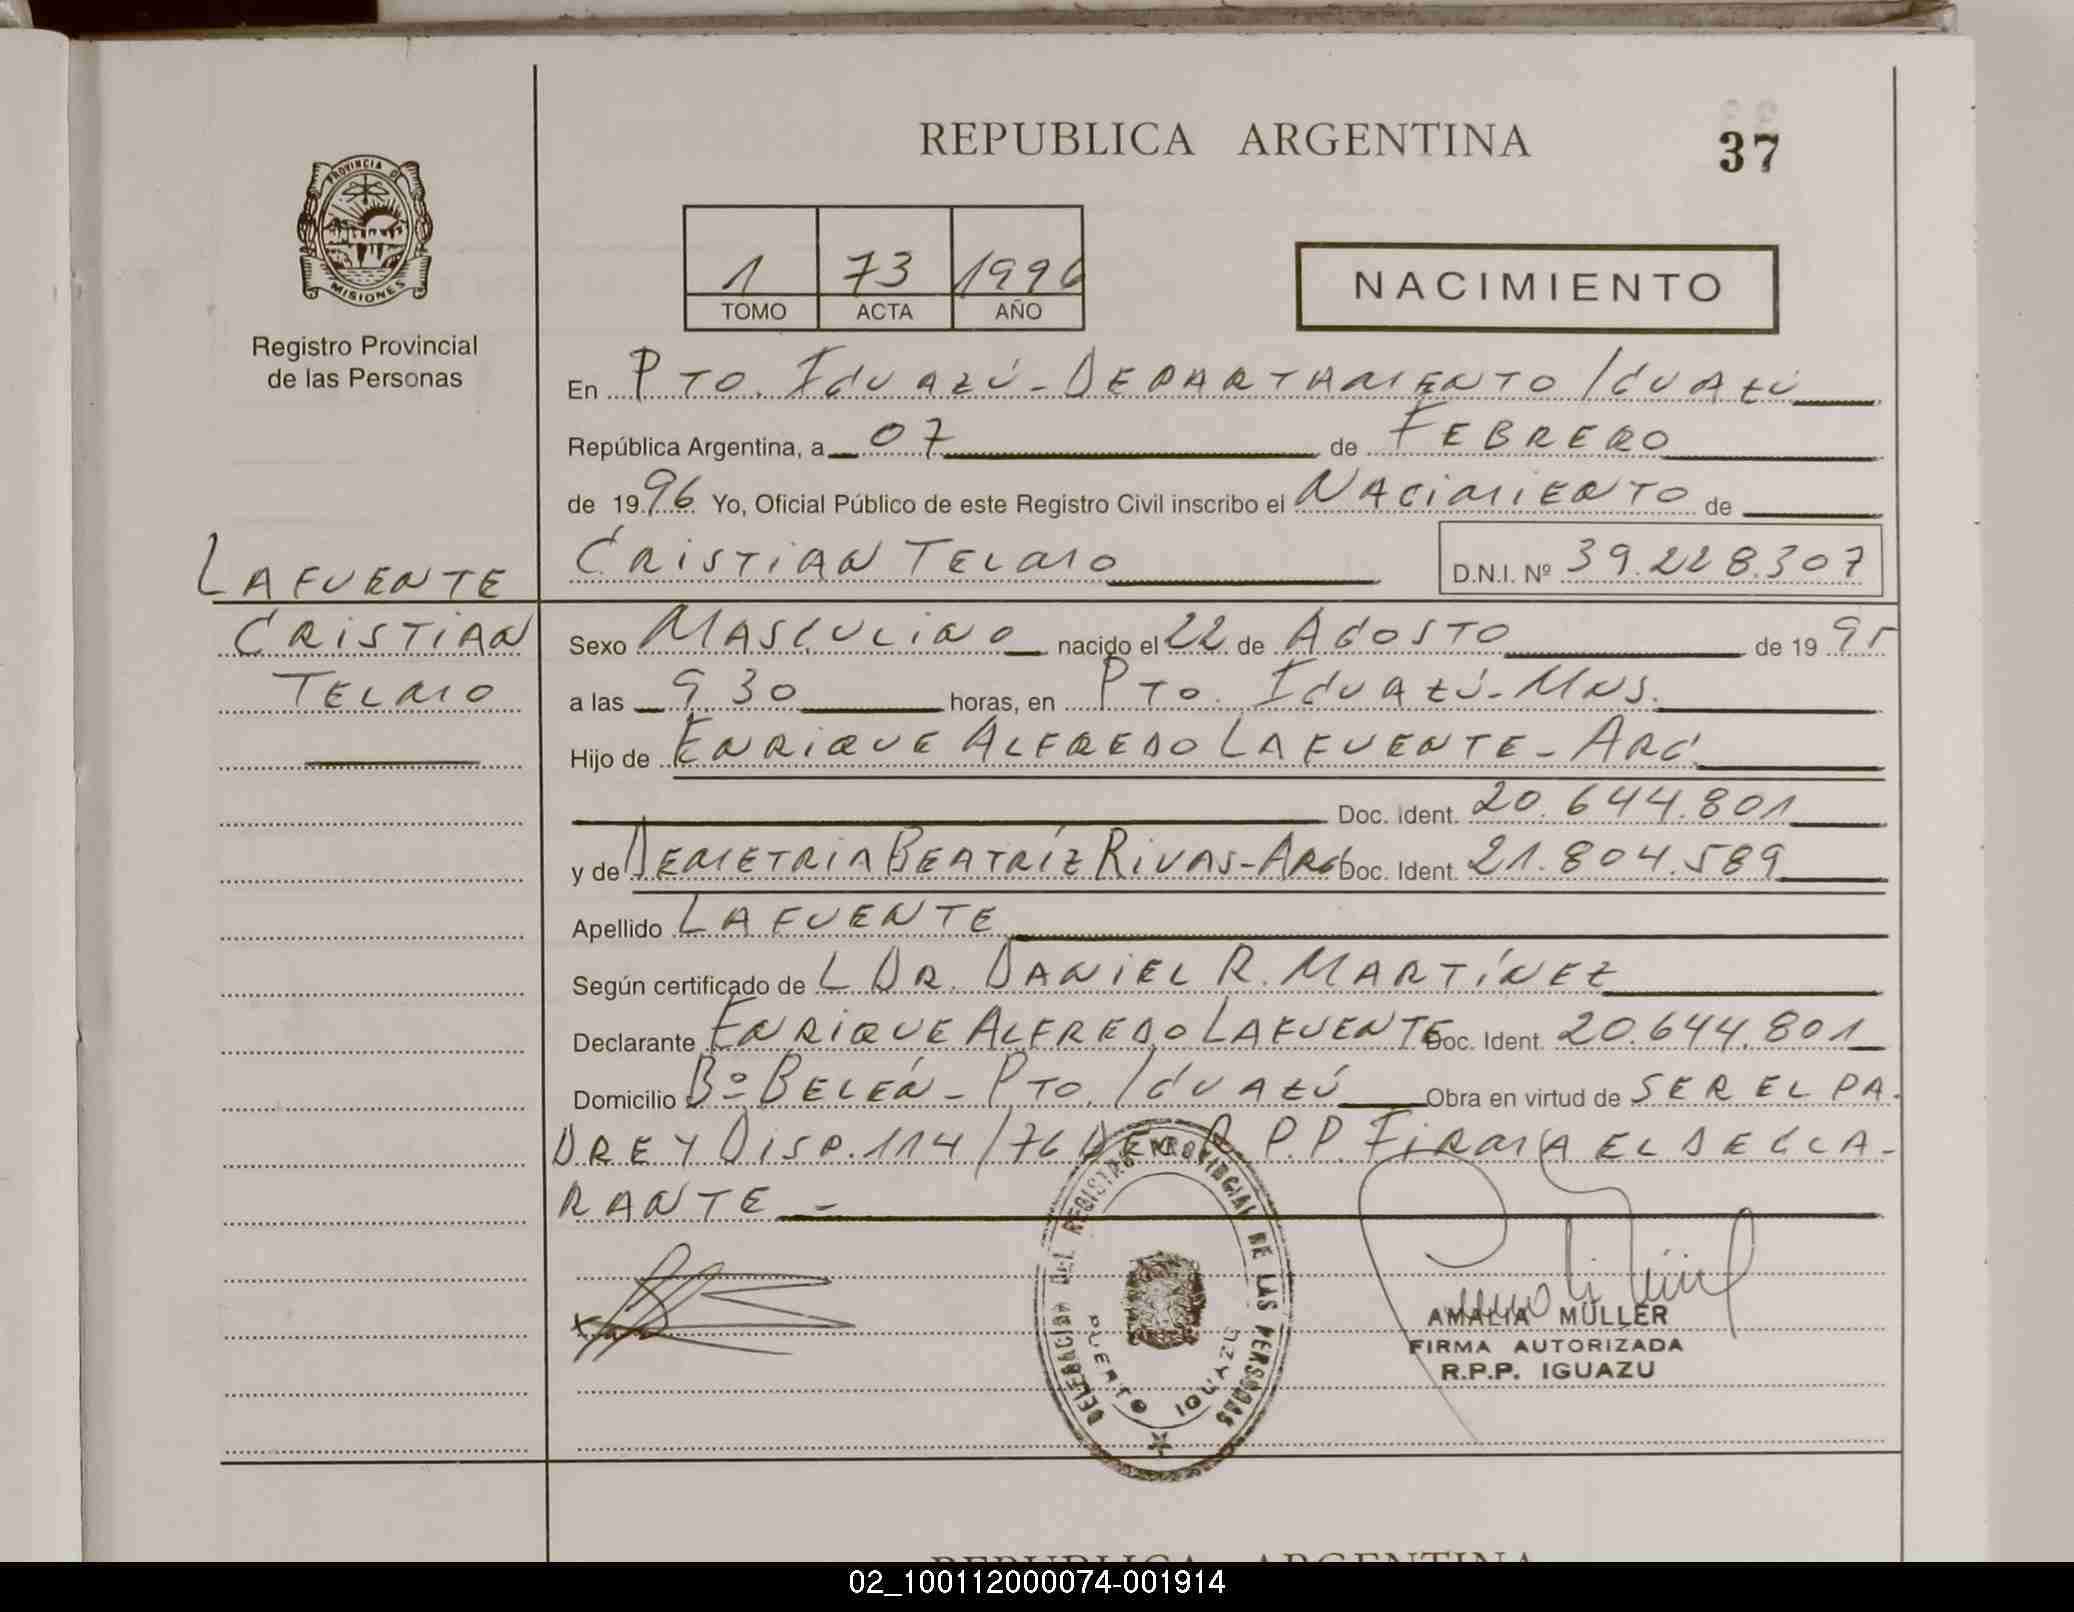 REPUBLICA ARGENTINA
37
PROVINCIA DE
MISIONES
Registro Provincial
de las Personas
1 73 1996
TOMO ACTA AÑO
NACIMIENTO
En PTO. IGUAZÚ - DEPARTAMENTO IGUAZÚ
República Argentina, a 07 de FEBRERO
de 1996 Yo, Oficial Público de este Registro Civil inscribo el NACIMIENTO de
CRISTIAN TELMO D.N.I. Nº 39.228.307
LAFUENTE
CRISTIAN
TELMO
Sexo MASCULINO nacido el 22 de AGOSTO de 1995
a las 9 30 horas, en PTO. IGUAZÚ - MNS.
Hijo de ENRIQUE ALFREDO LAFUENTE - ARG.
Doc. Ident. 20.644.801
y de DEMETRIA BEATRÍZ RIVAS - ARG Doc. Ident. 21.804.589
Apellido LAFUENTE
Según certificado de L DR. DANIEL R. MARTÍNEZ
Declarante ENRIQUE ALFREDO LAFUENTE Doc. Ident. 20.644.801
Domicilio Bº BELÉN - PTO. IGUAZÚ Obra en virtud de SER EL PA-
DRE Y DISP. 114/76 DEL R.P.P. FIRMA EL DECLA-
RANTE -
DELEGACION DEL REGISTRO PROVINCIAL DE LAS PERSONAS
PUERTO IGUAZU
AMALIA MÜLLER
FIRMA AUTORIZADA
R.P.P. IGUAZU
REPUBLICA ARGENTINA
02_100112000074-001914